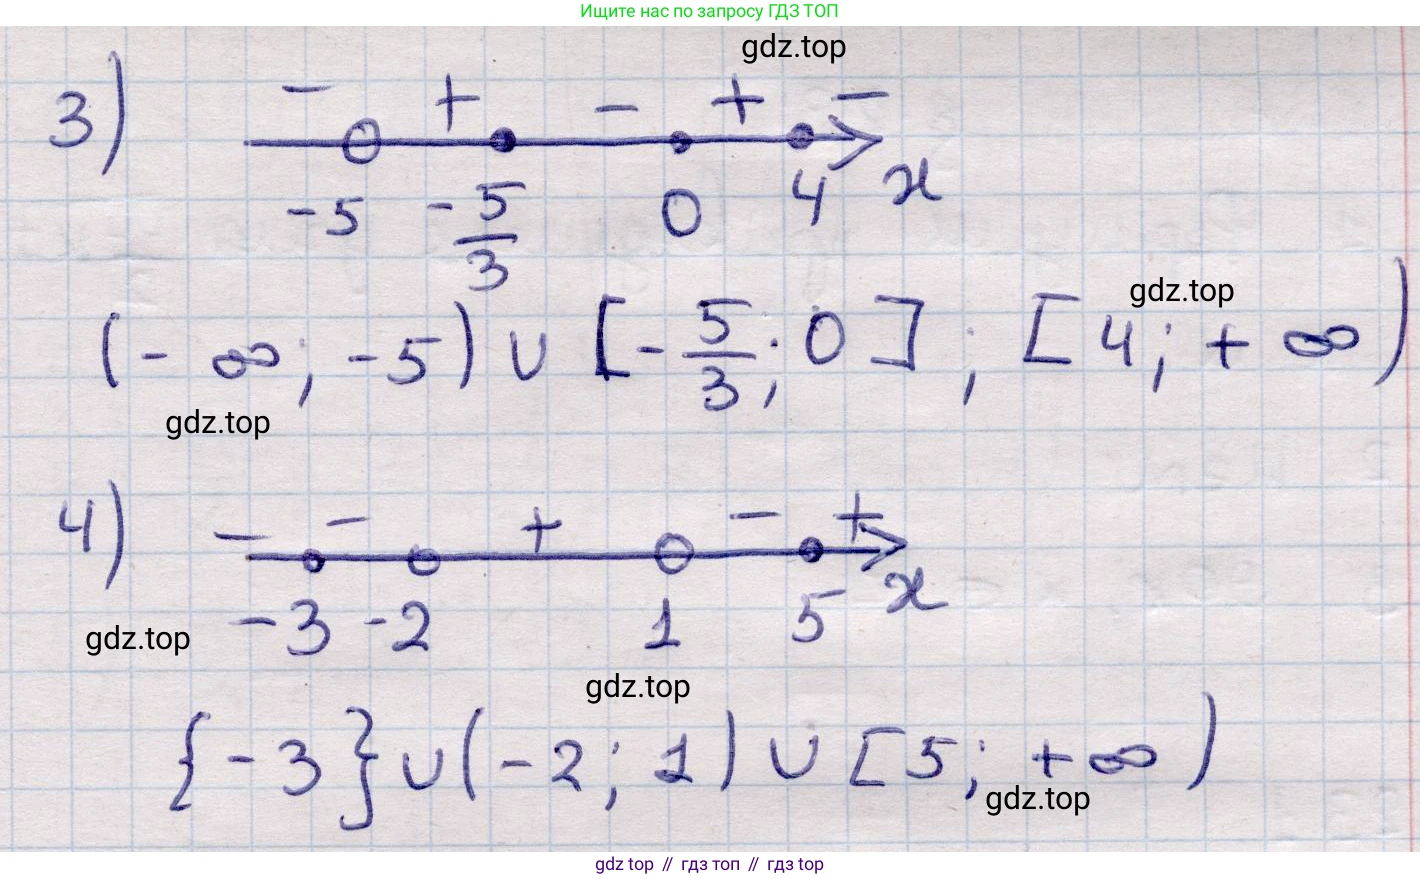 Ищите нас по запросу ГДЗ ТОП
gdz.top
3) - + - + -
-5 -5/3 0 4 x
gdz.top
(-∞; -5) ∪ [-5/3; 0]; [4; +∞)
gdz.top
4) - - + - +
-3 -2 1 5 x
gdz.top
gdz.top
{-3} ∪ (-2; 1) ∪ [5; +∞)
gdz.top
gdz top // гдз топ // gdz top